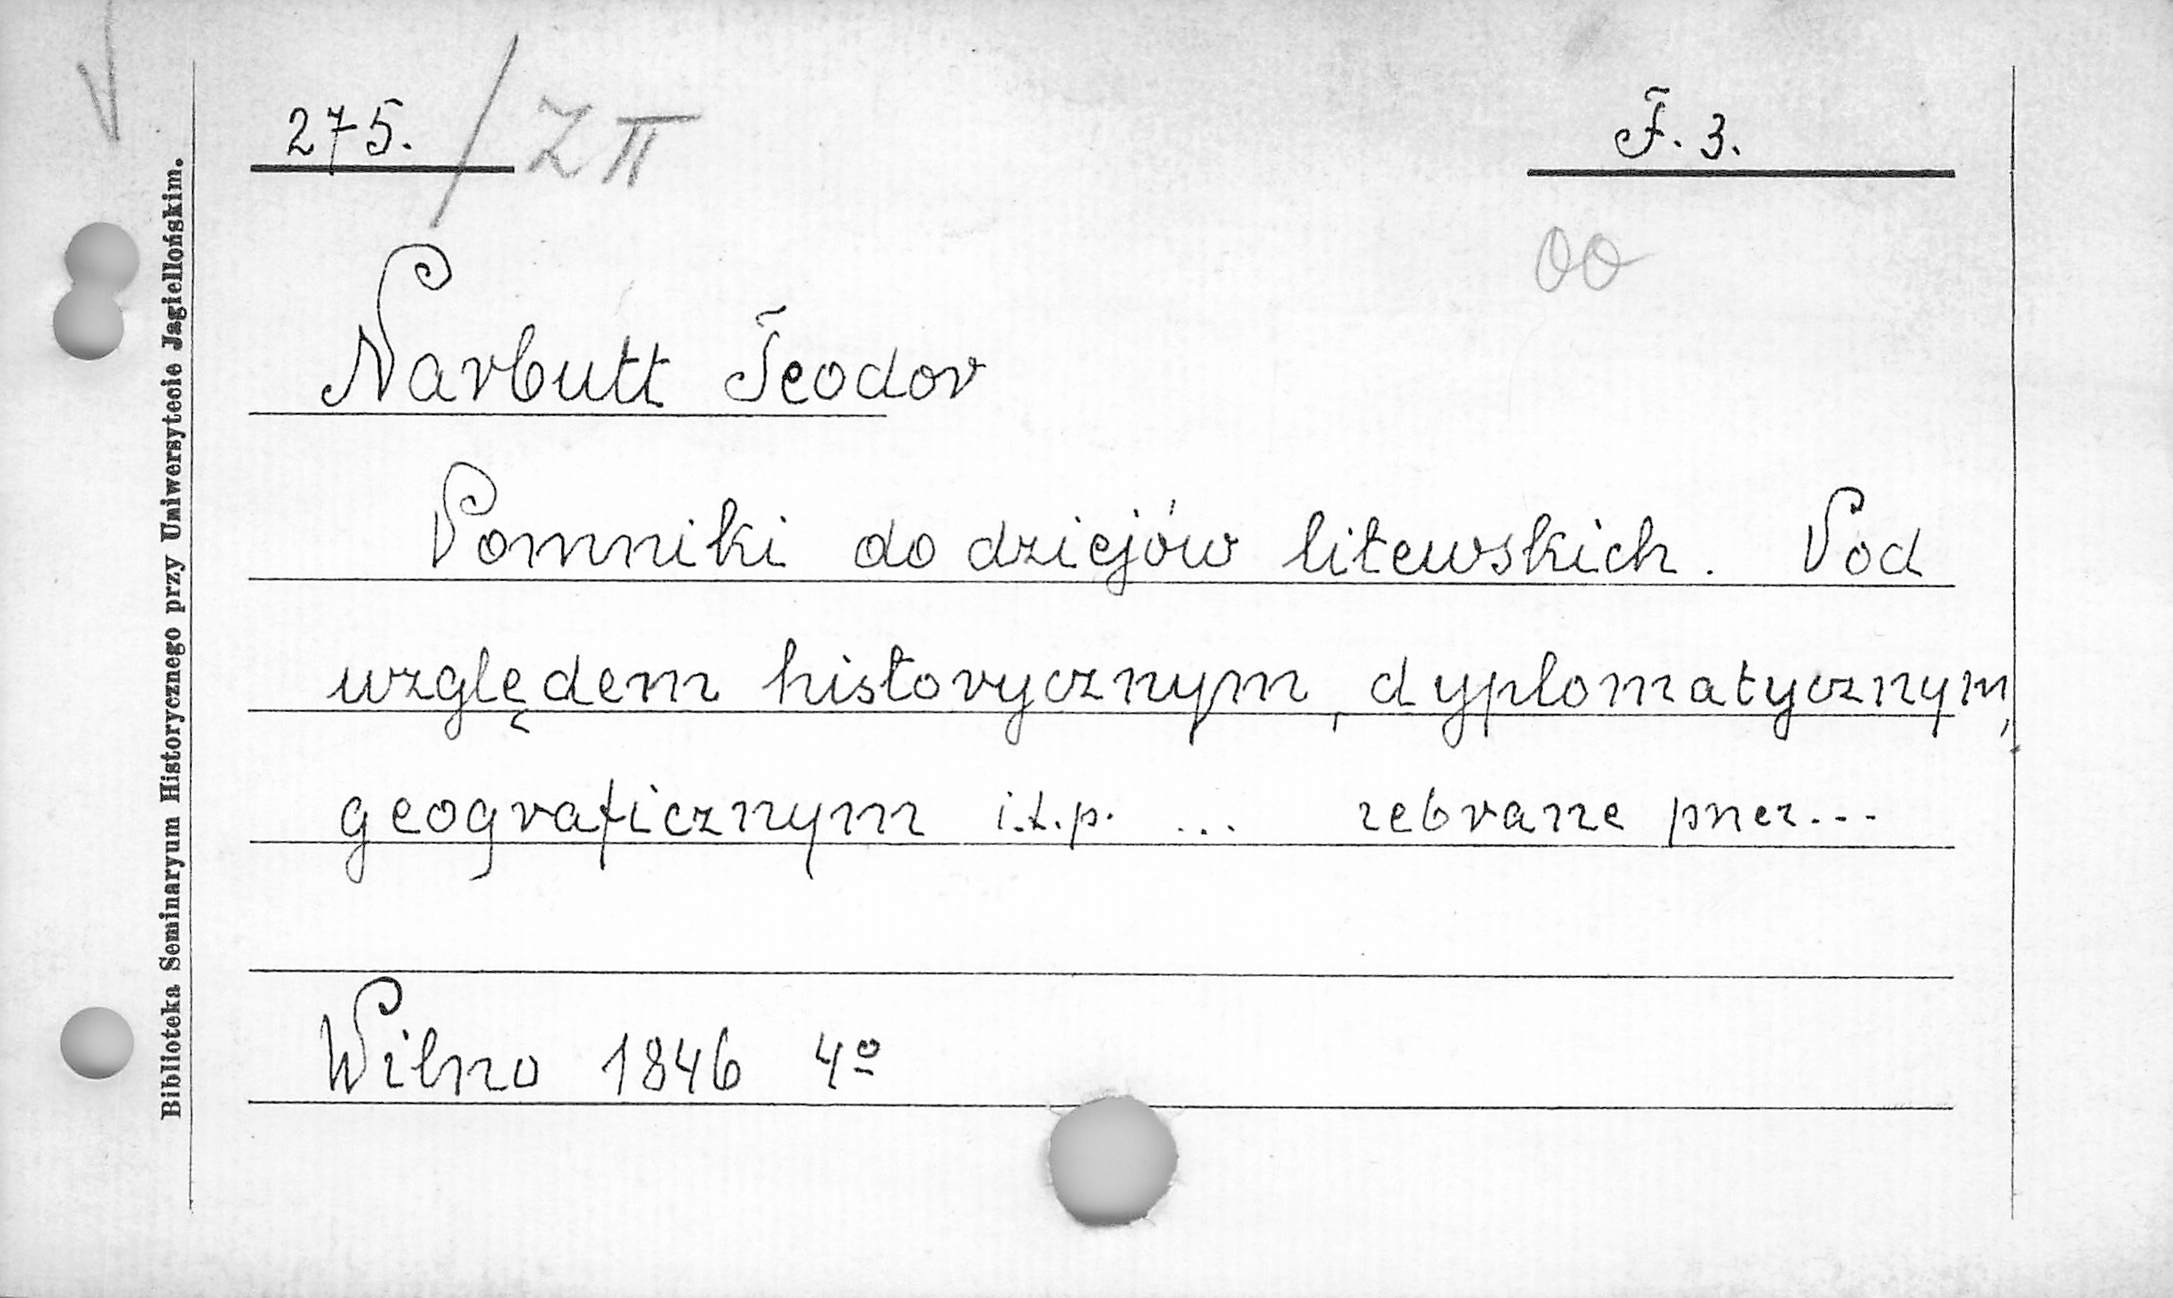 275. / Z II
F. 3.
00
Narbutt Teodor
Pomniki do dziejów litewskich. Pod
względem historycznym, dyplomatycznym,
geograficznym i.t.p. ... zebrane przez...
Wilno 1846 4º
Biblioteka Seminaryum Historycznego przy Uniwersytecie Jagiellońskim.